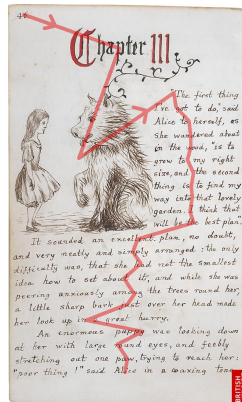 Chapter III
"The first thing
I've got to do," said
Alice to herself, as
she wandered about
in the wood, "is to
grow to my right
size, and the second
thing is to find my
way into that lovely
garden. I think that
will be the best plan."
It sounded an excellent plan, no doubt,
and very neatly and simply arranged: the only
difficulty was, that she had not the smallest
idea how to set about it, and while she was
peering anxiously among the trees round her,
a little sharp bark just over her head made
her look up in a great hurry.
An enormous puppy was looking down
at her with large round eyes, and feebly
stretching out one paw, trying to reach her:
"poor thing!" said Alice in a coaxing tone
BRITISH